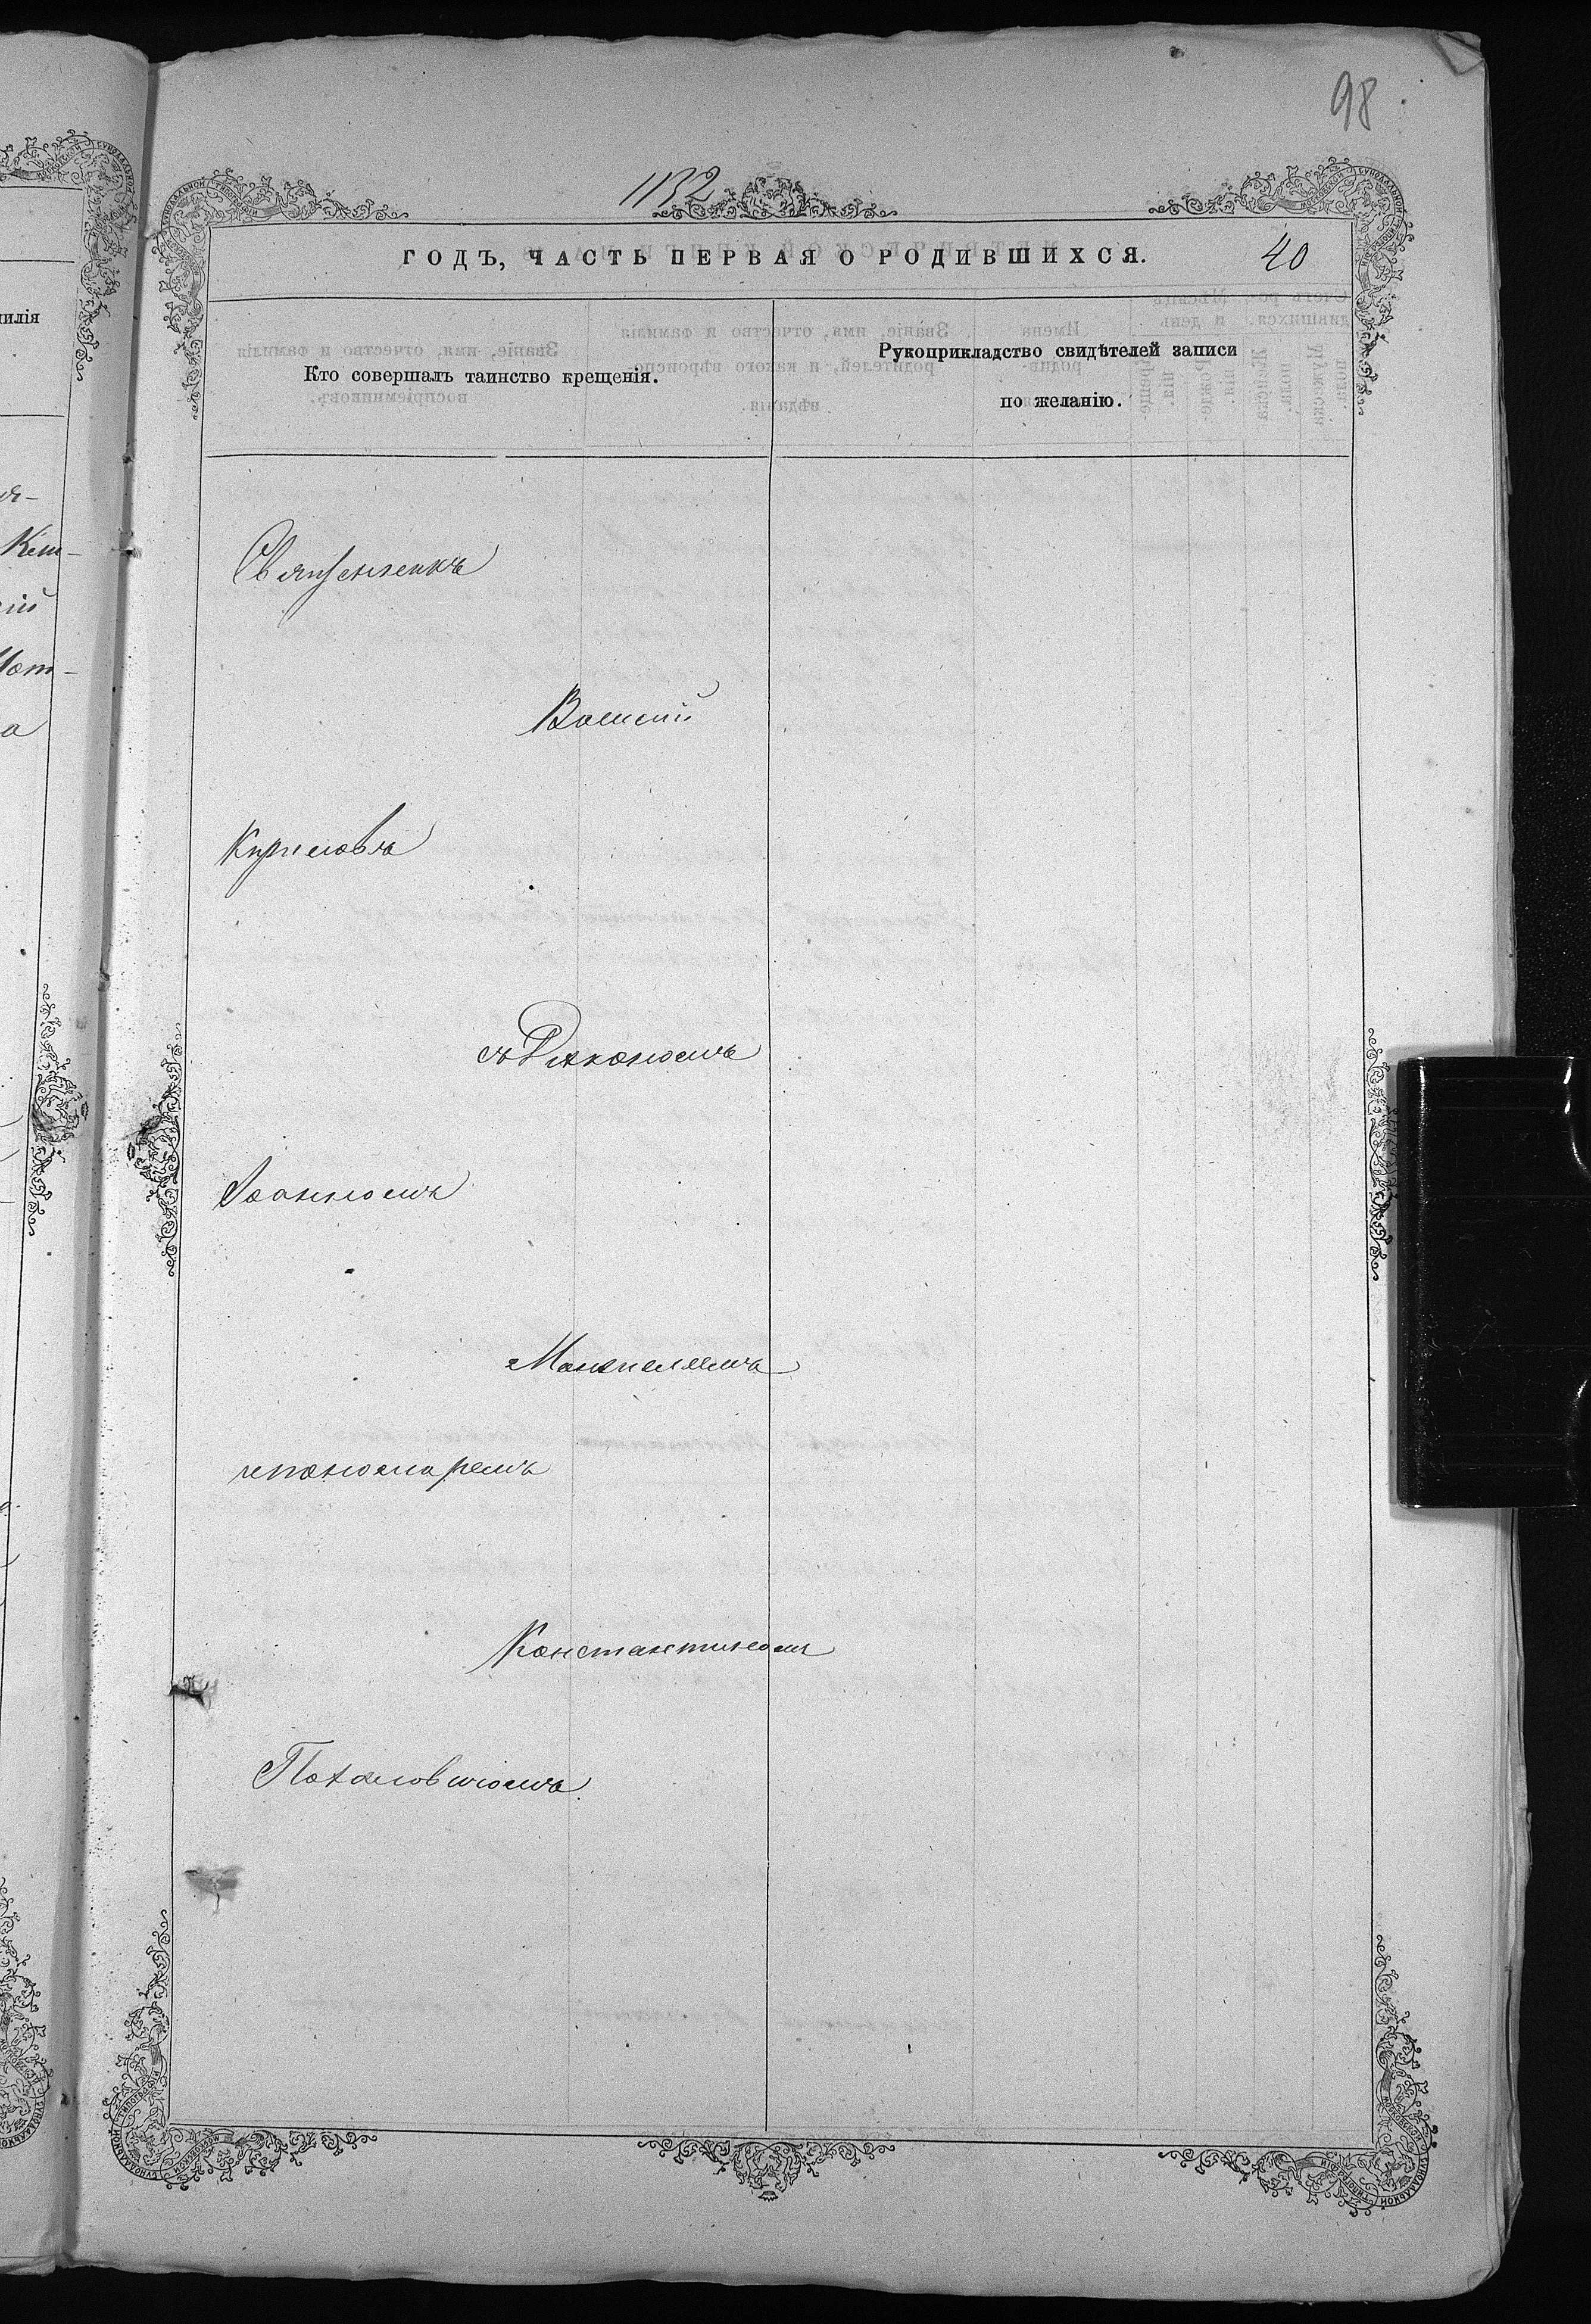 98
1132
ГОДЪ, ЧАСТЬ ПЕРВАЯ О РОДИВШИХСЯ.
40
Кто совершалъ таинство крещенія.
Рукоприкладство свидѣтелей записи
по желанію.
Священникъ
Василій
Кириловъ
съ Діакономъ
Іоанномъ
пономаремъ
Константиномъ